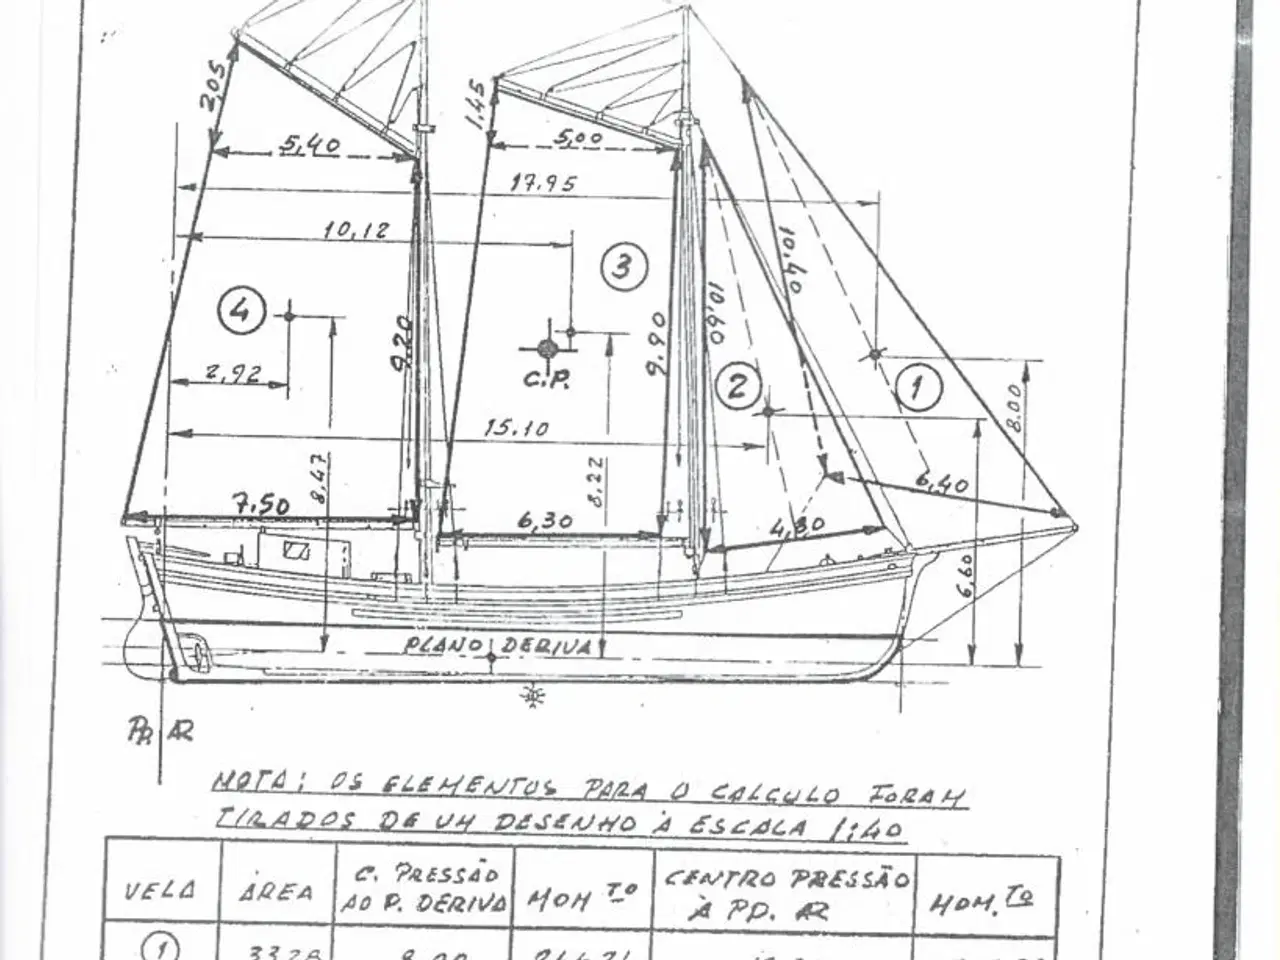 2,05
1.45
5,40
5,00
17.95
10,12
3
10,40
4
9.20
9.90
10,60
C.P.
2
1
2,92
8.00
15.10
8,47
8,22
6,40
7.50
6,30
4,80
6,60
PLANO DERIVA
PP. AR
NOTA: OS ELEMENTOS PARA O CALCULO FORAM
TIRADOS DE UM DESENHO À ESCALA 1:40
VELA ÁREA C. PRESSÃO AO P. DERIVA MOM TO CENTRO PRESSÃO À PP. AR MOM. TO
1 33.28 8.00